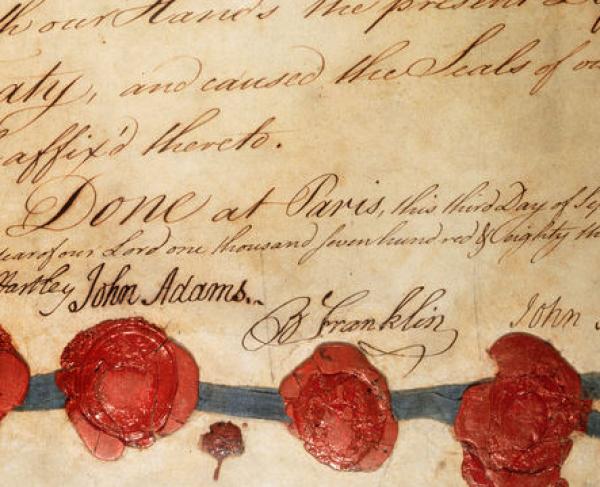 our Hands the present
aty, and caused the Seals of ou
affix'd thereto.
Done at Paris, this third Day of Se
year of our Lord one thousand seven hundred & eighty th
Hartley John Adams. B Franklin John